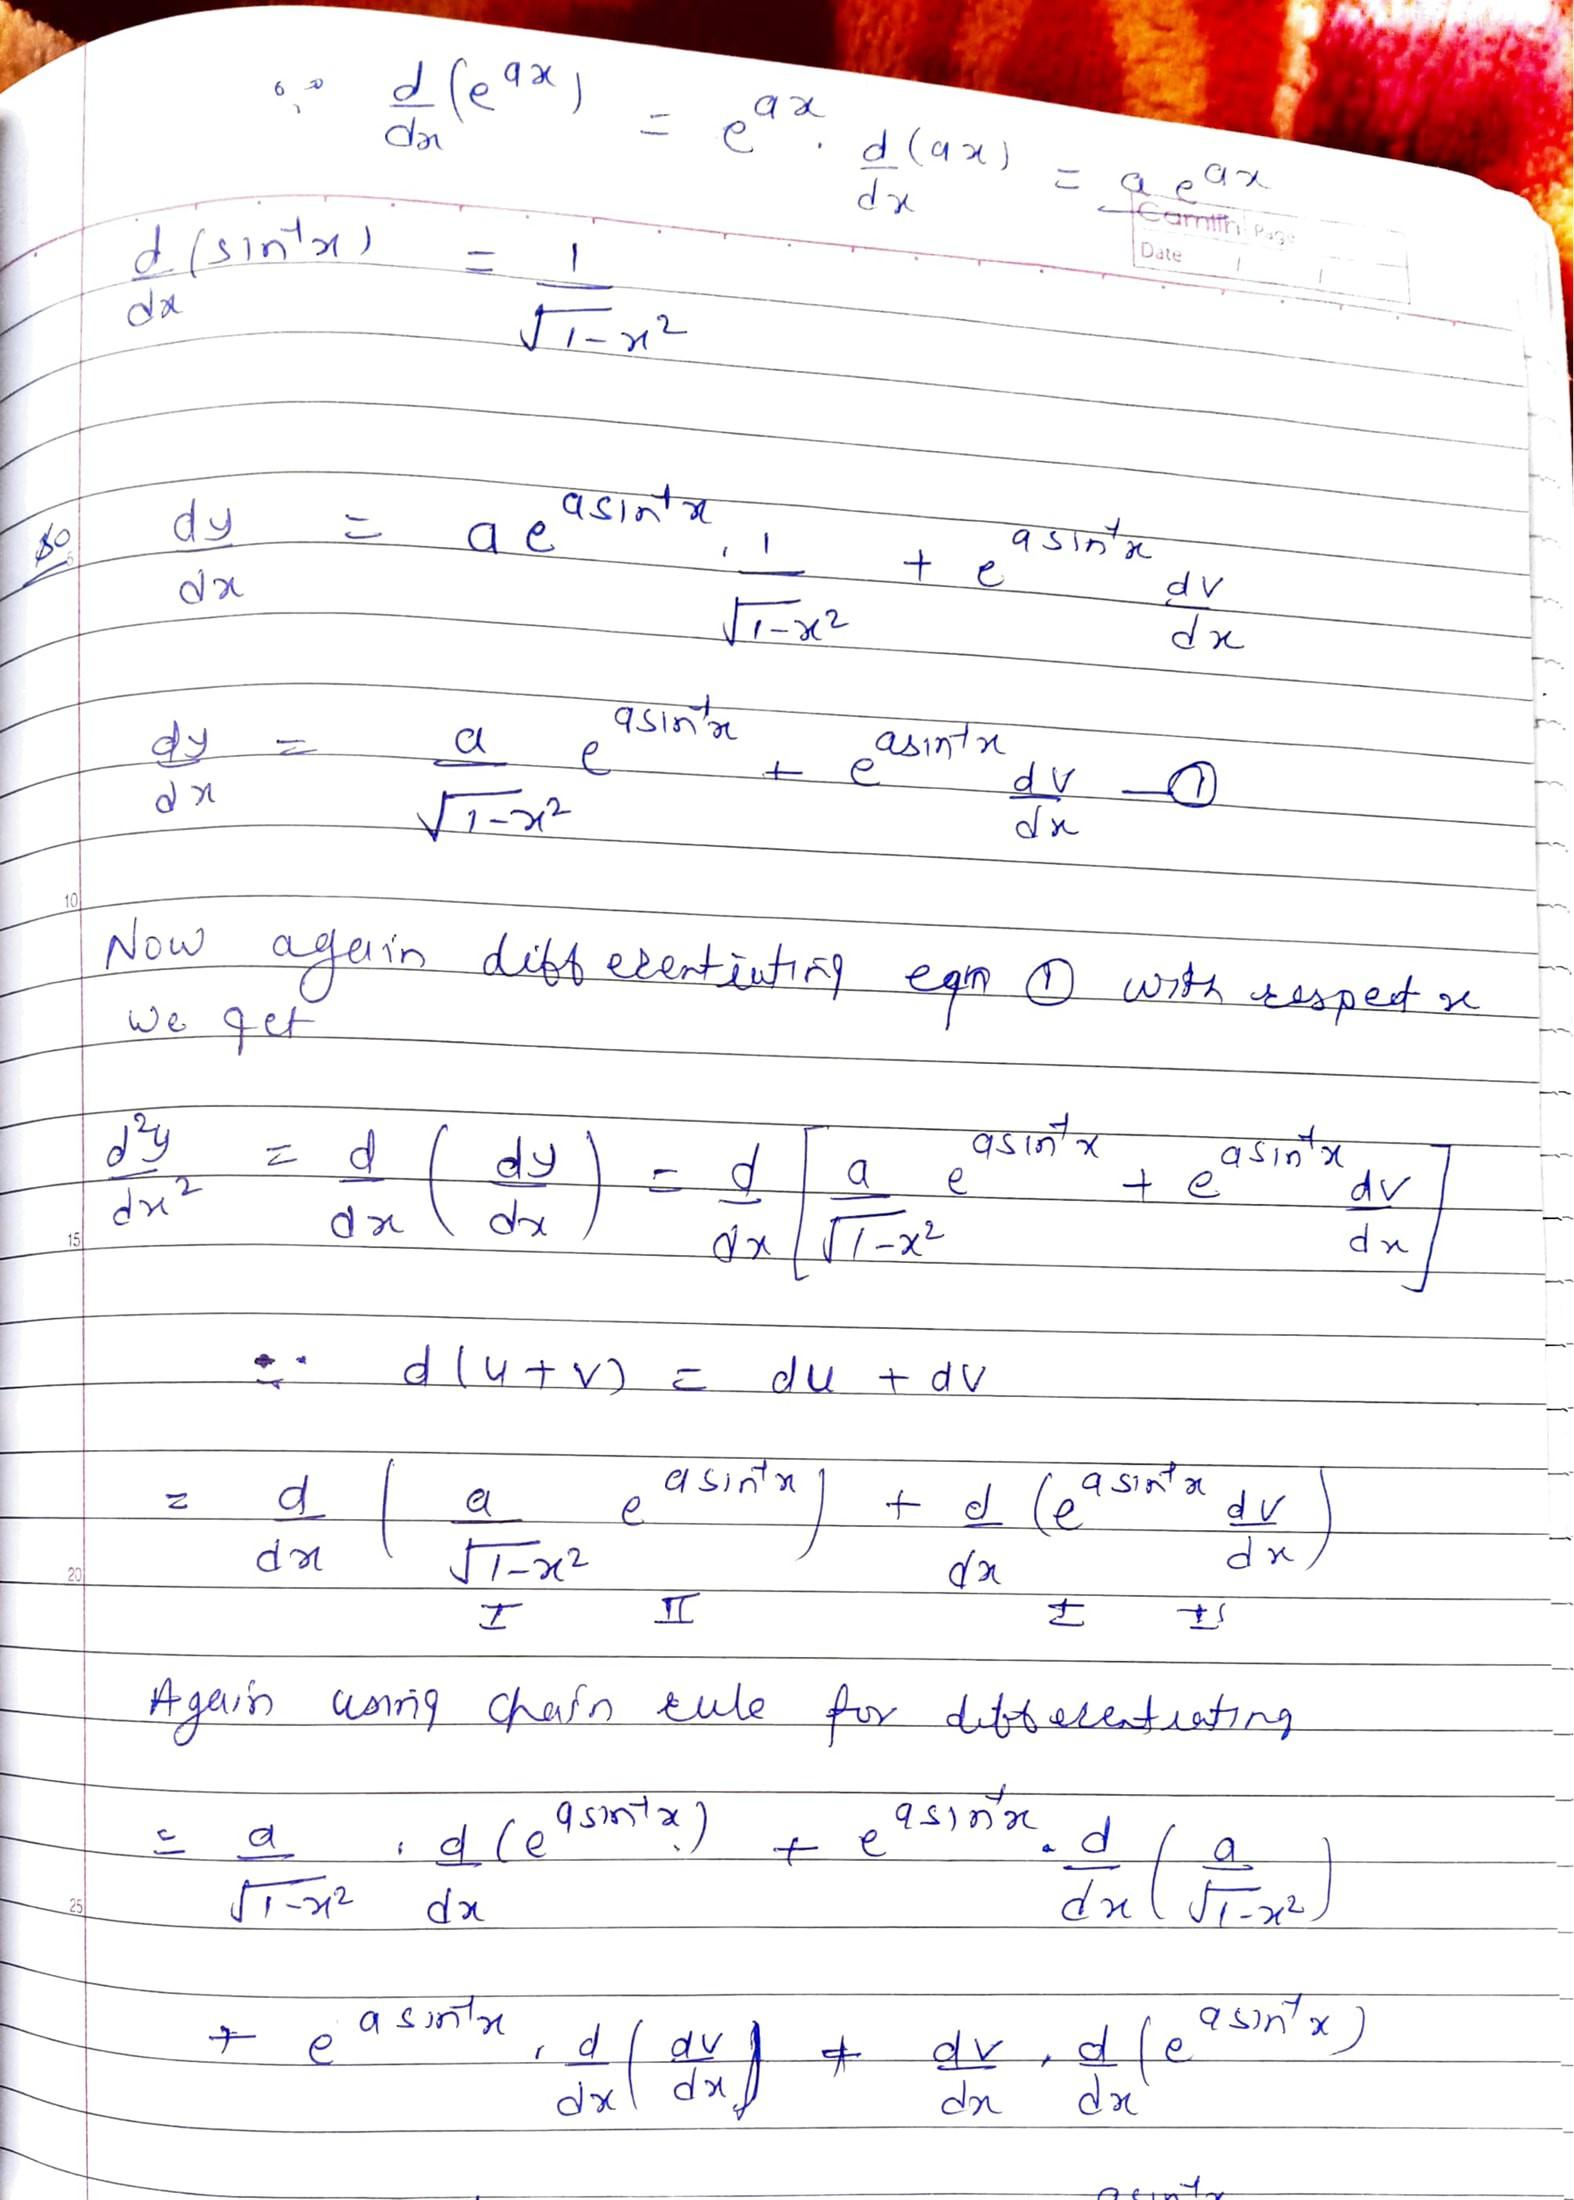 ∵ d/dx (e^ax) = e^ax . d/dx (ax) = a e^ax
Camlin Page
Date / /
d/dx (sin⁻¹x) = 1/√1-x²
so dy/dx = a e^asin⁻¹x . 1/√1-x² + e^asin⁻¹x dv/dx
dy/dx = a/√1-x² e^asin⁻¹x + e^asin⁻¹x dv/dx — ①
10
Now again differentiating eqn ① with respect x
we get
d²y/dx² = d/dx (dy/dx) = d/dx [a/√1-x² e^asin⁻¹x + e^asin⁻¹x dv/dx]
15
∵ d(u+v) = du + dv
= d/dx (a/√1-x² e^asin⁻¹x) + d/dx (e^asin⁻¹x dv/dx)
20
I II I II
Again using chain rule for differentiating
= a/√1-x² . d/dx (e^asin⁻¹x) + e^asin⁻¹x . d/dx (a/√1-x²)
25
+ e^asin⁻¹x . d/dx (dv/dx) + dv/dx . d/dx (e^asin⁻¹x)